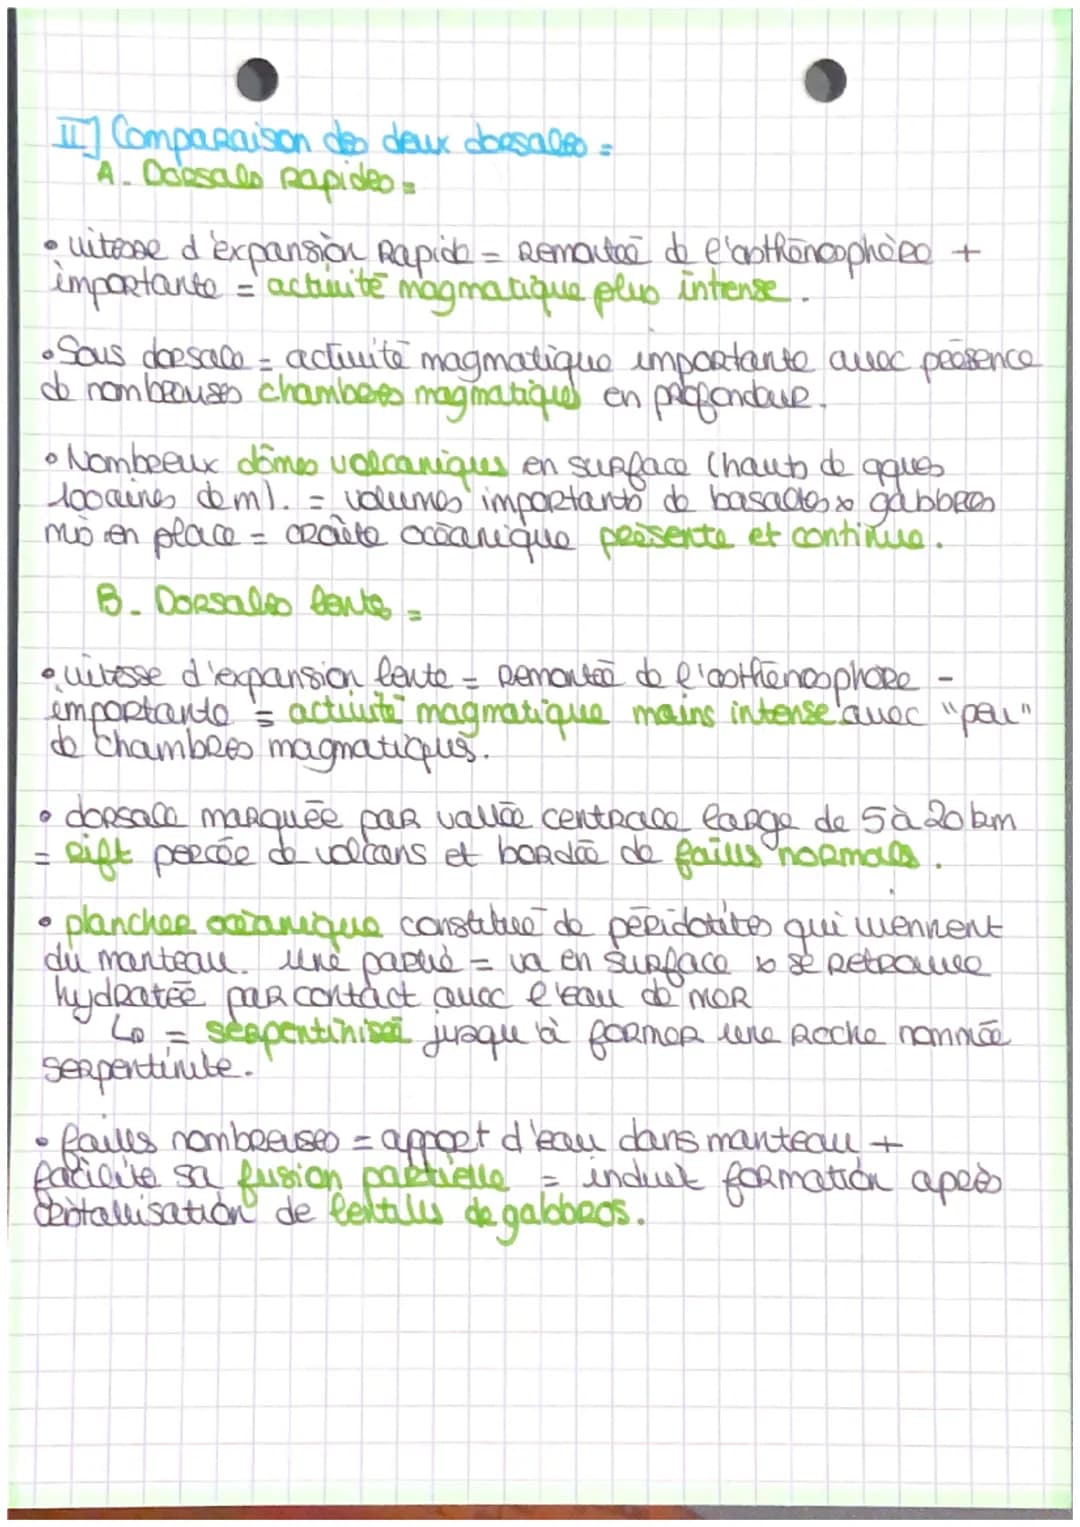 II] Comparaison des deux dorsales =
A. Dorsales Rapides =
• vitesse d'expansion Rapide = Remontée de l'asthénosphère +
importante = activité magmatique plus intense.
• Sous dorsale = activité magmatique importante avec présence
de nombreuses chambres magmatiques en profondeur.
• Nombreux dômes volcaniques en surface (hauts de qques
100aines de m). = volumes importants de basaltes & gabbros
mis en place = croûte océanique présente et continue.
B. Dorsales lentes =
• vitesse d'expansion lente = Remontée de l'asthénosphère -
importante = activité magmatique moins intense avec "peu"
de chambres magmatiques.
• dorsale marquée par vallée centrale large de 5 à 20 km
= Rift percée de volcans et bordée de failles normales.
• plancher océanique constitué de péridotites qui viennent
du manteau. Une partie = va en surface & se retrouve
hydratée par contact avec l'eau de mer
↳ = serpentinisée jusqu'à former une Roche nommée
serpentinite.
• failles nombreuses = apport d'eau dans manteau +
facilite sa fusion partielle = induit formation après
cristallisation de lentilles de gabbros.